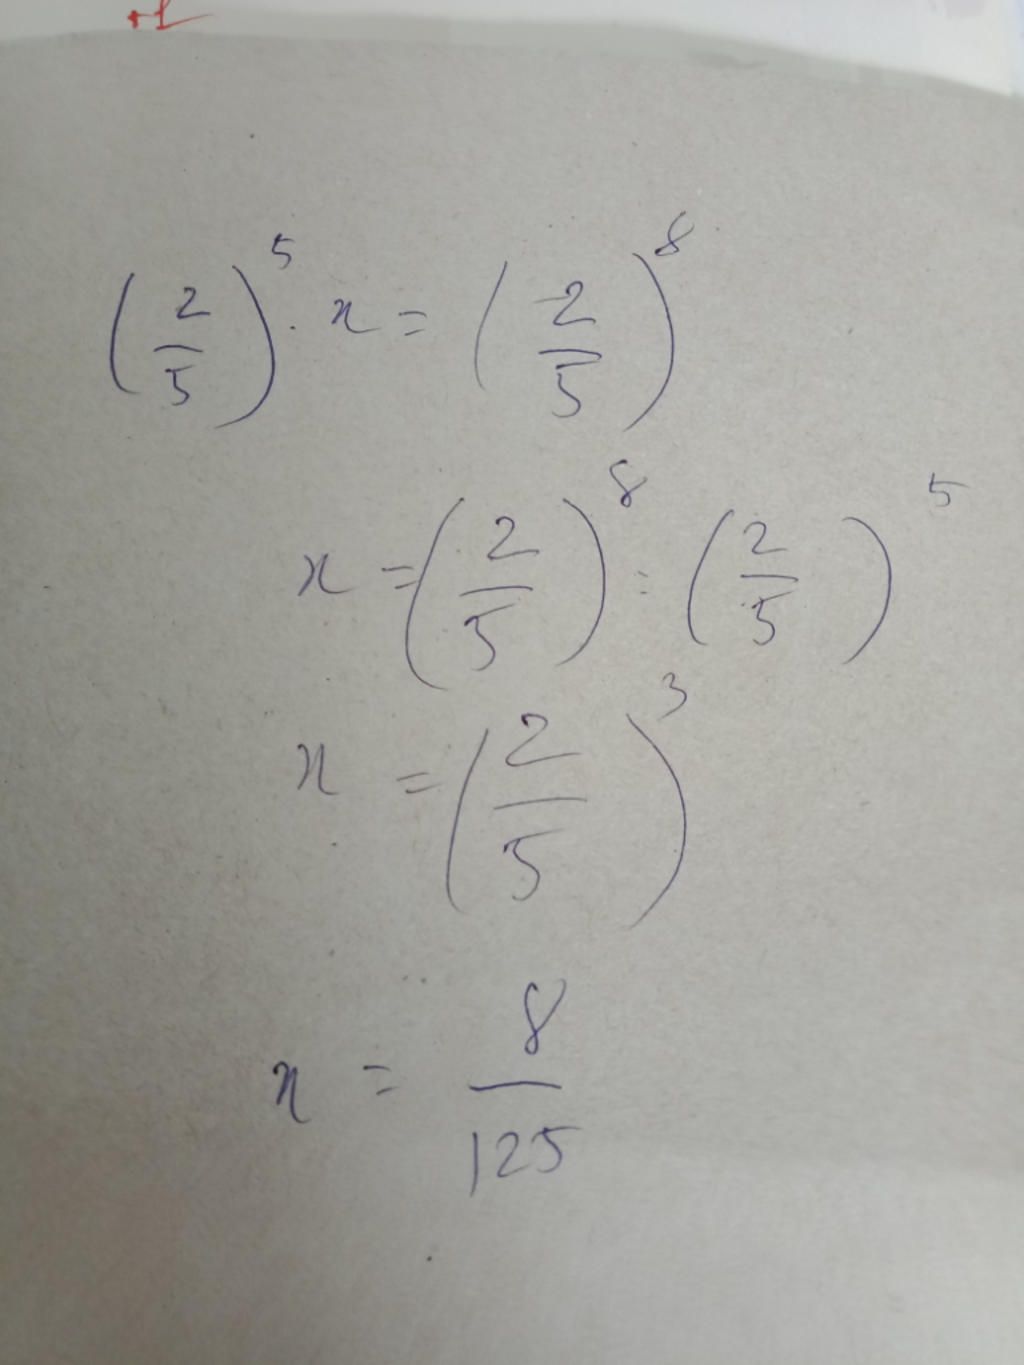 +1
(2/5)^5 . x = (2/5)^8
x = (2/5)^8 : (2/5)^5
x = (2/5)^3
x = 8/125